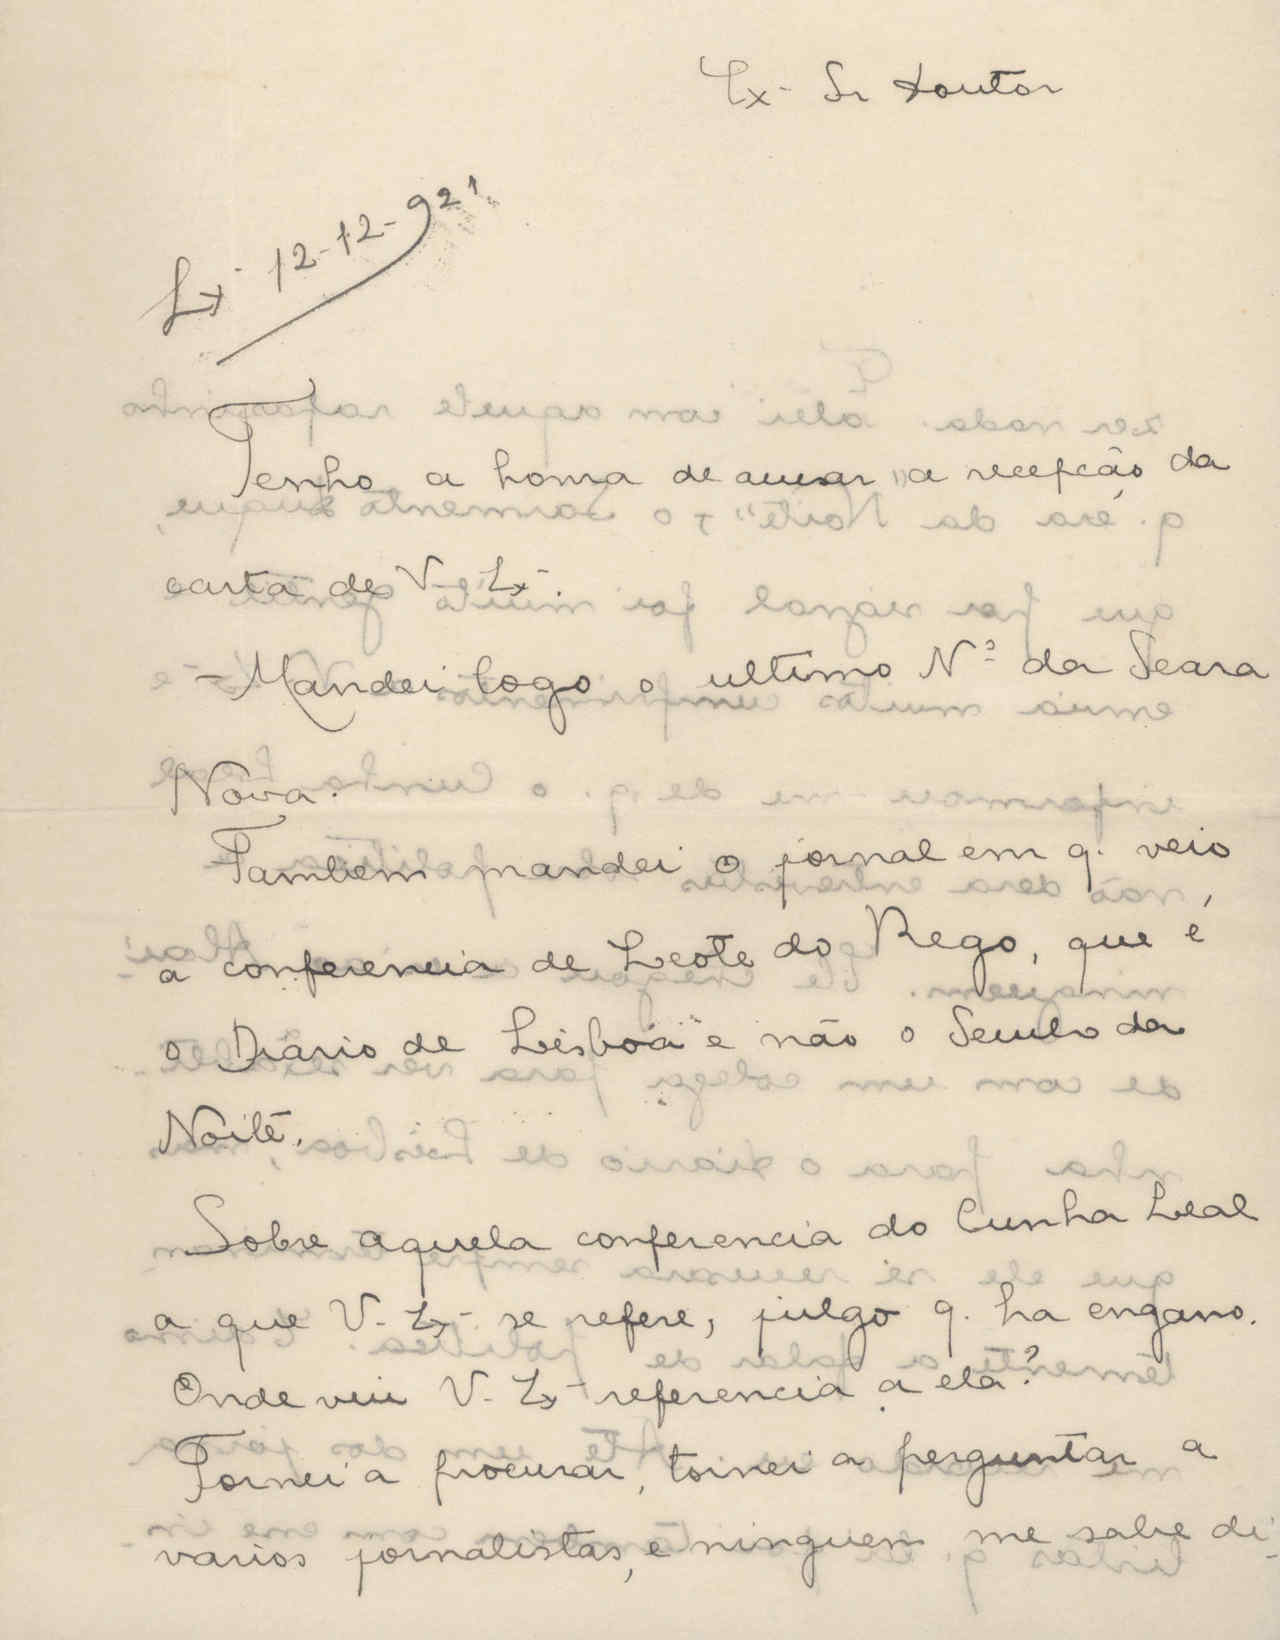 Ex- Sr Doutor
Lx- 12-12-921
Tenho a honra de acusar a recepção da
carta de V. Ex-.
- Mandei logo o ultimo Nº da Seara
Nova.
Tambem mandei o jornal em q. veio
a conferencia de Leote do Rego, que é
o Diário de Lisboa e não o Seculo da
Noite.
Sobre aquela conferencia do Cunha Leal
a que V. Ex- se refere, julgo q. ha engano.
Onde viu V. Ex- referencia a ela?
Tornei a procurar, tornei a perguntar a
varios jornalistas, e ninguem me sabe di-